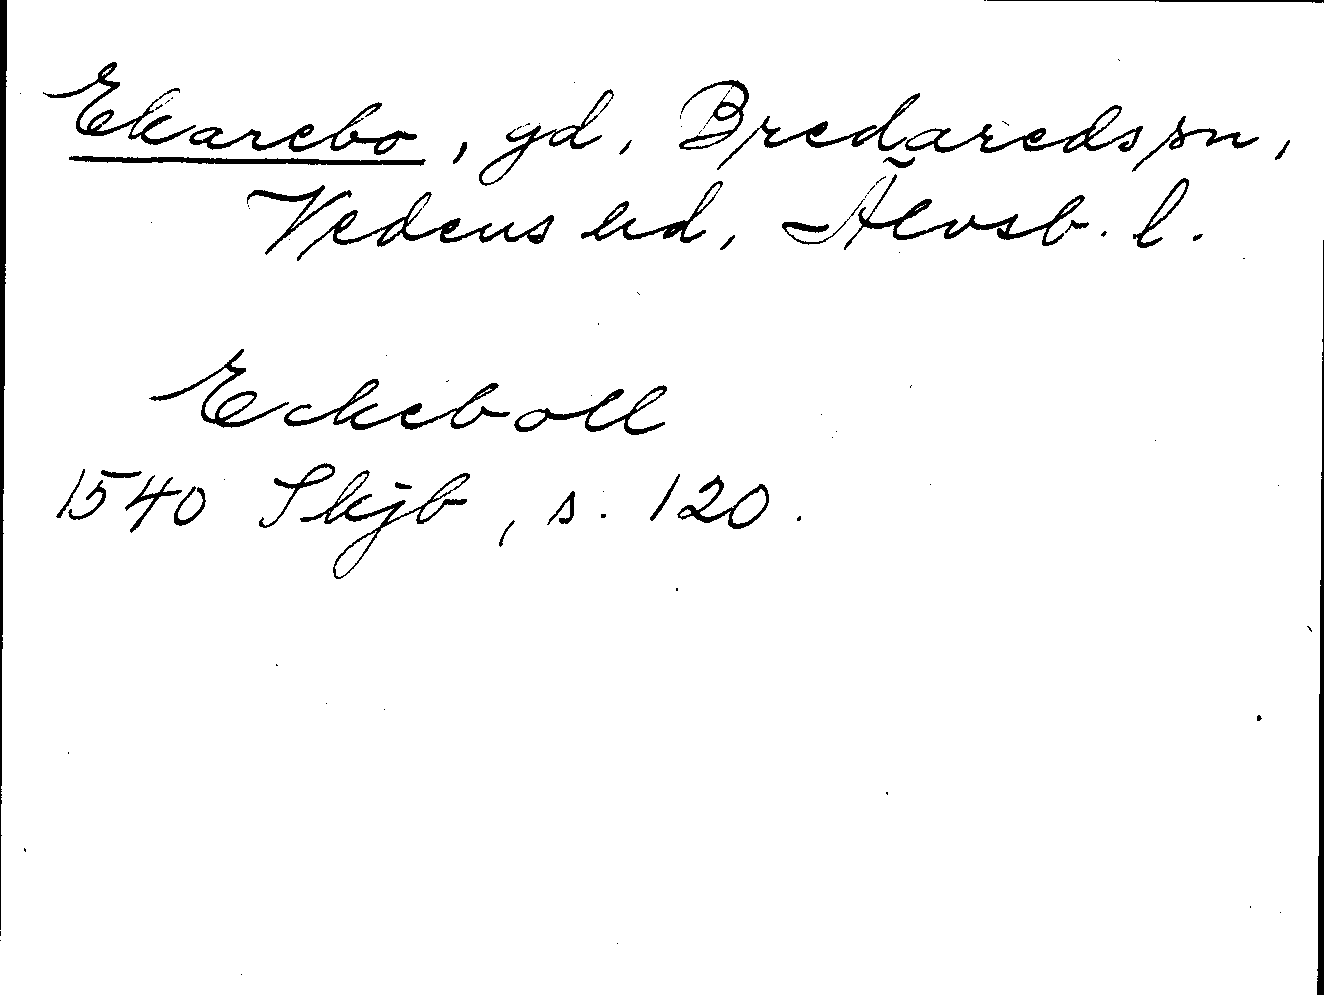 Ekarebo, gd, Bredareds sn,
Vedens hd, Älvsb. l.
Eckeboll
1540 Skjb, s. 120.